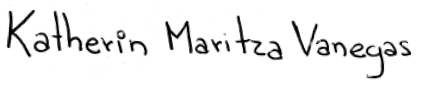 Katherin Maritza Vanegas